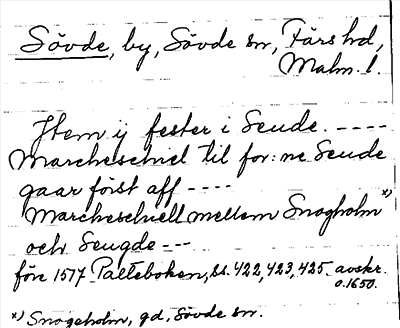 Sövde, by, Sövde sn, Färs hd,
Malm. l.
Item ij fester i Seude. ----
Marcheschiel til for:ne Seude
gaar först aff ----
Marcheschiell mellem Snogholm x)
och Seugde ---
före 1577 Palteboken, ss. 422, 423, 425. avskr.
o. 1650.
x) Snogeholm, gd, Sövde sn.